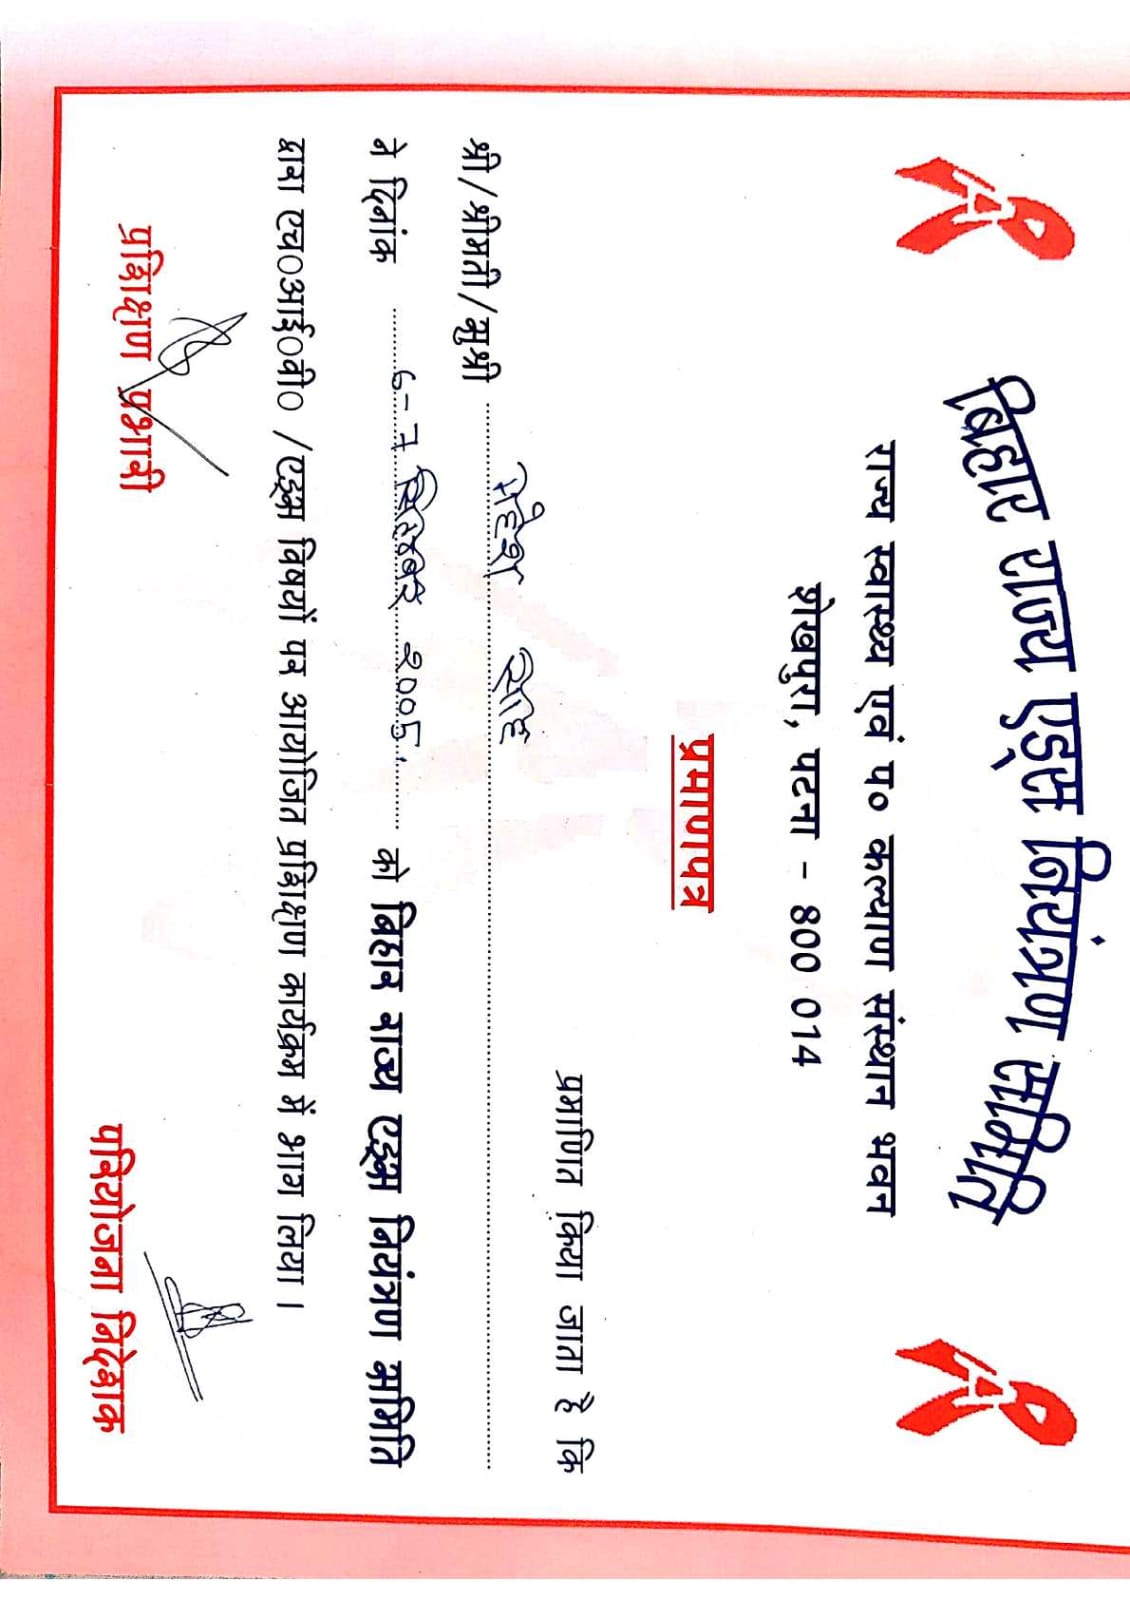 बिहार राज्य एड्स नियंत्रण समिति
राज्य स्वास्थ्य एवं प० कल्याण संस्थान भवन
शेखपुरा, पटना - 800 014
प्रमाणपत्र
प्रमाणित किया जाता है कि
श्री/श्रीमती/सुश्री
ने दिनांक सितम्बर २००5 को बिहार राज्य एड्स नियंत्रण समिति
द्वारा एच०आई०वी० /एड्स विषयों पर आयोजित प्रशिक्षण कार्यक्रम में भाग लिया।
प्रशिक्षण प्रभारी
परियोजना निदेशक